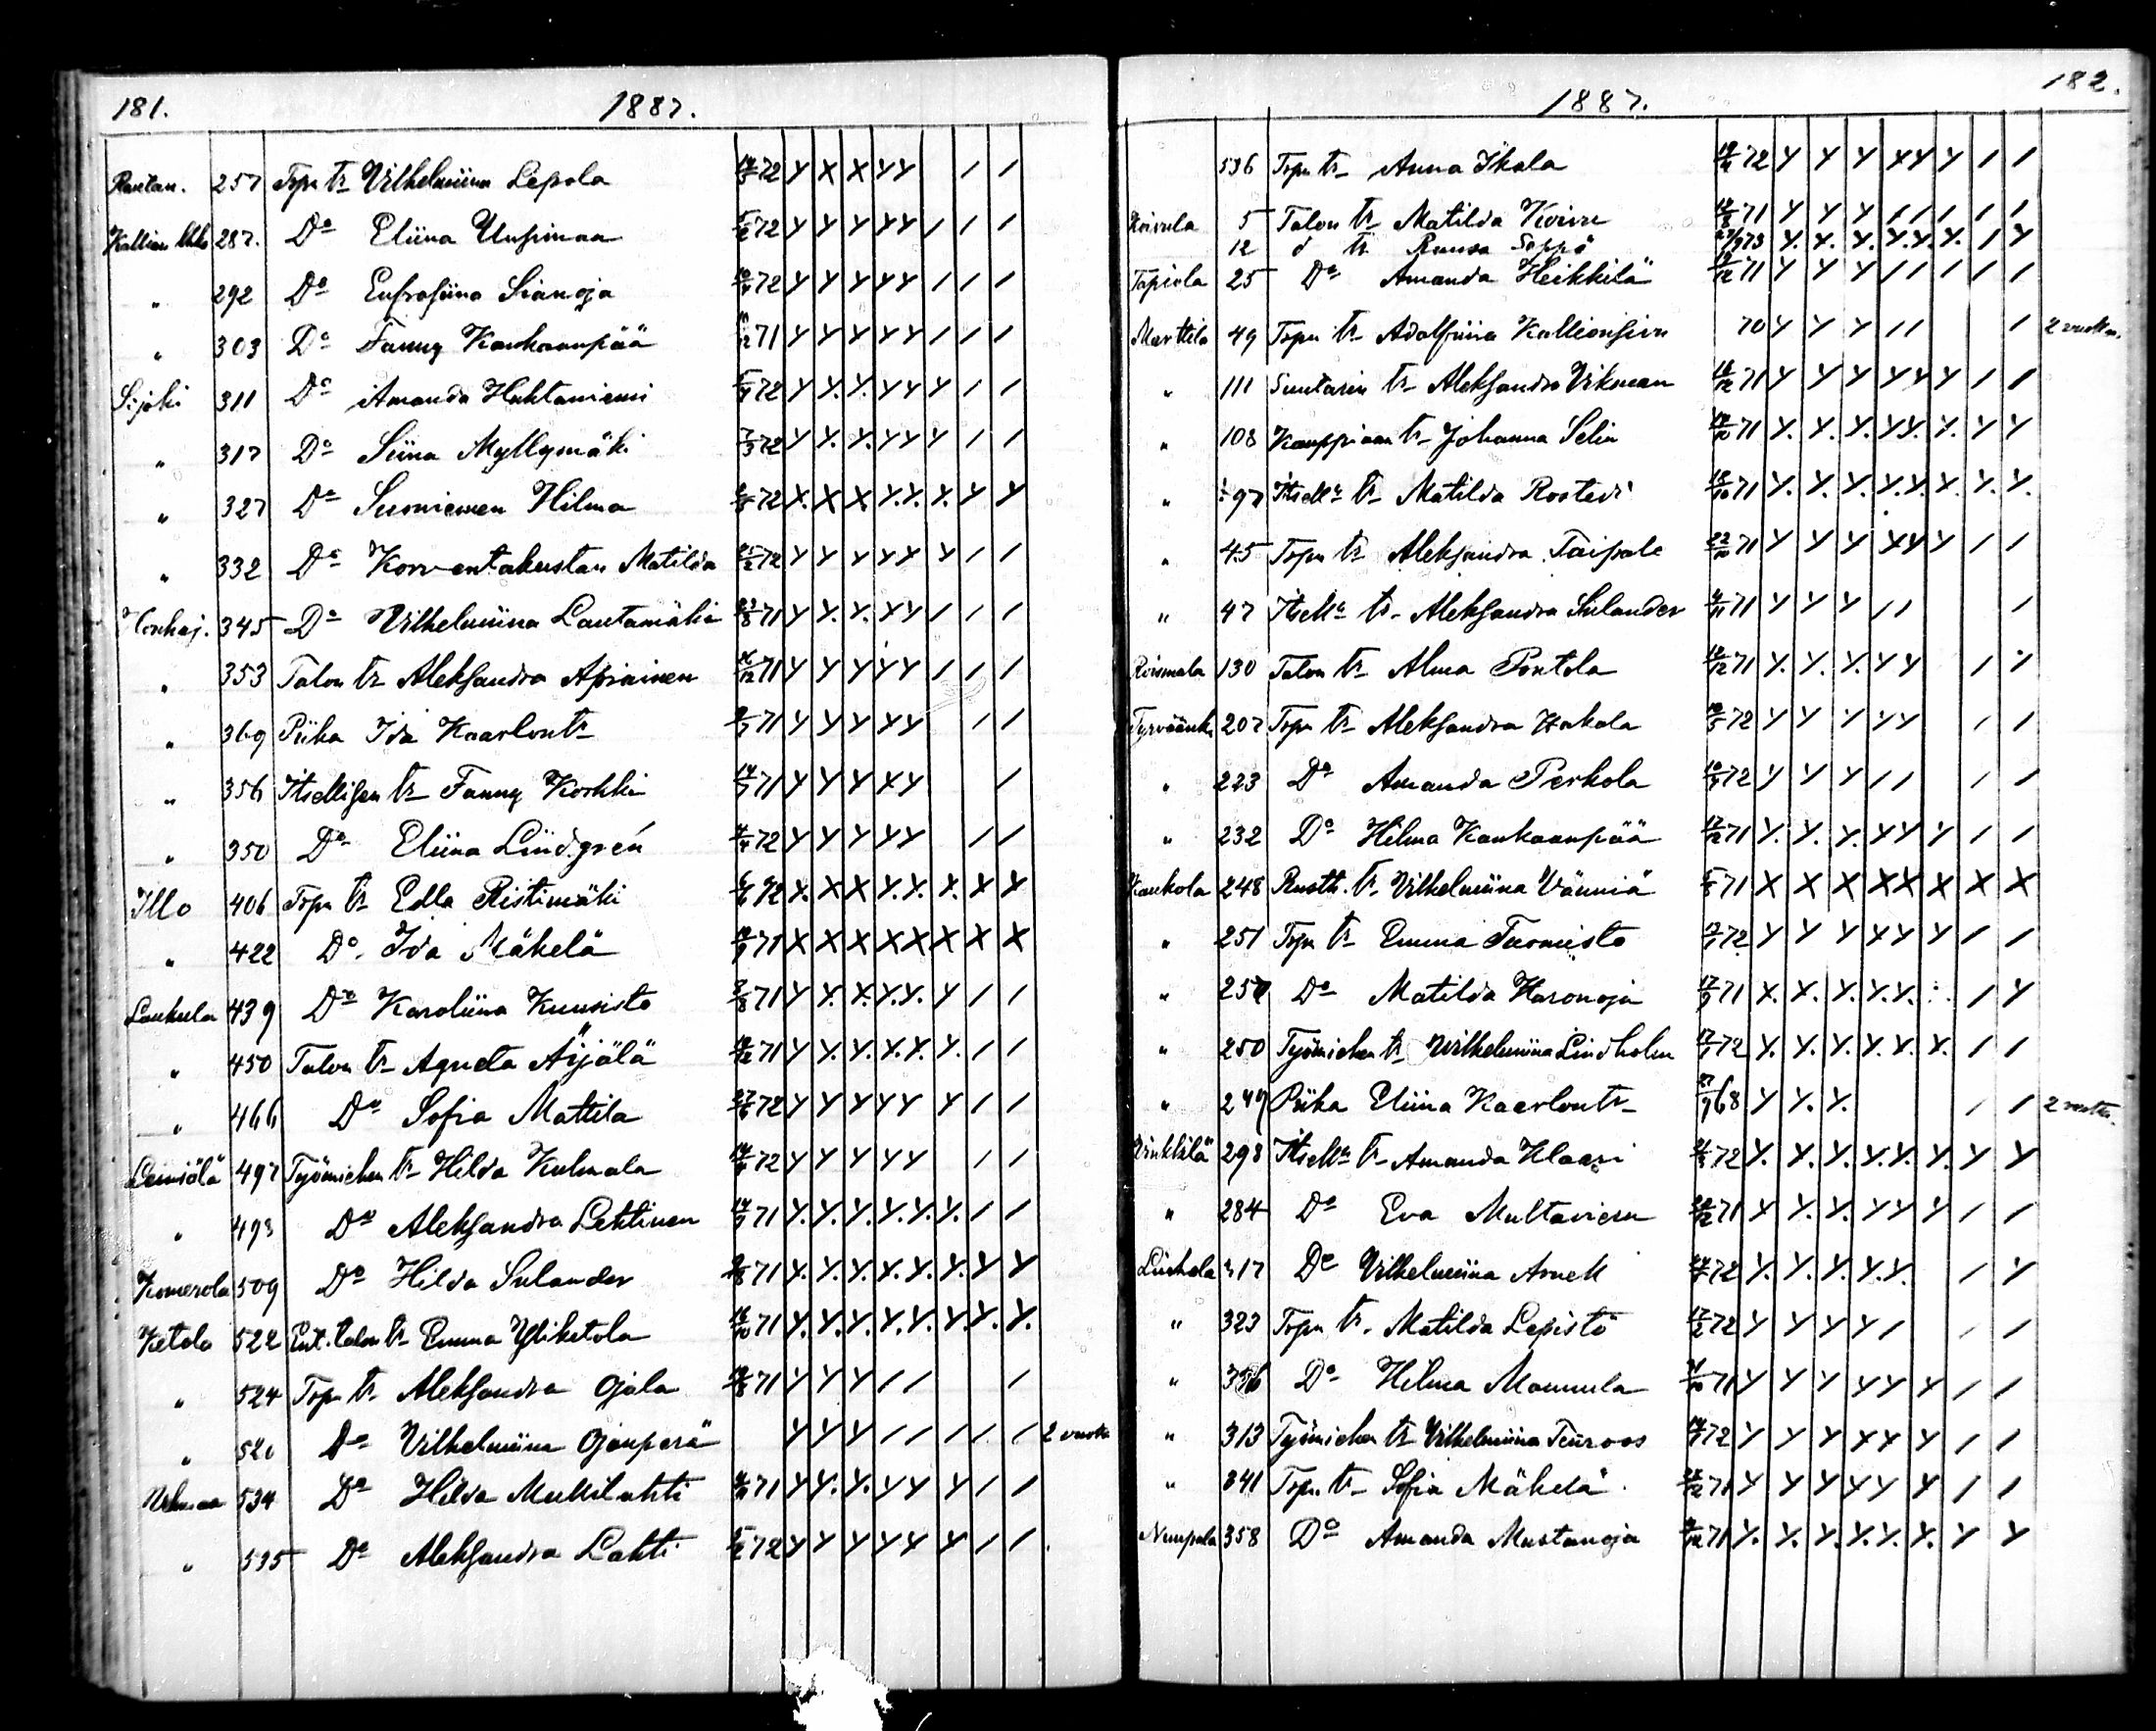 181. 1887.
Rautan. 257 Torp. tr Vilhelmiina Lepola 72 Y X X Y Y / /
287. Do Eliina Uusimaa 5/2 72 Y Y Y Y Y / / /
" 292 Do Eufrosiina Sianoja 72 Y Y Y Y Y / / /
" 303 Do Fanny Kankaanpää 71 Y Y Y Y Y / / /
311 Do Amanda Huhtaniemi 72 Y Y. Y. Y Y Y / /
" 317 Do Siina Myllymäki 7/3 72 Y Y. Y. Y Y Y / /
" 327 Do Suoniemen Hilma 72 X. X X Y. Y. X. Y Y
" 332 Do Korventakustan Matilda 72 Y Y Y Y Y Y / /
Honkaj. 345 Do Vilhelmiina Lautamäki 71 Y Y. Y. X Y / / /
" 353 Talon tr Aleksandra Apiainen 71 Y Y Y Y Y / / /
" 369 Piika Ida Kaarlontr 71 Y Y Y Y Y / /
" 356 Itsellisen tr Fanny Koskki 71 Y Y Y X Y /
" 350 Do Eliina Lindgrén 72 Y Y Y Y Y / /
Illo 406 Torp. tr Edla Ristimäki 72 X. X X Y. Y. X. X X
" 422 Do. Ida Mäkelä 71 X X X X X X X X
Laukula 439 Do Karoliina Kuusisto 71 Y Y. X. Y. Y. Y / /
" 450 Talon tr Agneta Äijälä 71 Y Y. Y. X. X. Y. / /
" 466 Do Sofia Mattila 72 Y Y Y Y Y Y / /
Leiniälä 497 Työmiehen tr Hilda Kulmala 72 Y Y Y Y Y / /
" 493 Do Aleksandra Lehtinen 71 Y. Y. Y. Y. Y. Y. / /
509 Do Hilda Sulander 71 Y. Y. Y. X. Y. Y. Y Y
Ketola 522 Ent. talon tr Emma Yliketola 16/10 71 Y. Y. Y. Y. Y. Y. Y. Y.
" 524 Torp. tr Aleksandra Ojala 71 Y Y Y / / /
" 520 Do Vilhelmiina Ojanperä Y Y Y / / / / / 2 vuotta
534 Do Hilda Mulkilahti 71 Y Y. Y. Y Y Y / /
" 535 Do Aleksandra Lahti 72 Y Y Y Y Y Y / /
182.
1887.
536 Torp. tr Anna Ikala 72 Y Y Y X Y Y / /
Koivula 5 Talon tr Matilda Koivu 71 Y Y Y / / / / /
12 d tr Ruusa Seppä 73 Y. Y. Y. Y. Y. Y. / Y
Tapiola 25 Do Amanda Heikkilä 71 Y Y Y / / / / /
Marttila 49 Torp. tr Adolfiina Kallionsivu 70 Y Y Y / / / 2 vuotta.
" 111 Suutarin tr Aleksandra Vikman 71 Y Y Y Y Y Y / /
" 108 Kauppiaan tr Johanna Selin 71 Y. Y. Y. Y Y. Y. Y Y
" 97 Itsell. tr Matilda Rostedi 71 Y. Y. Y. Y. Y. X. Y. Y.
" 45 Torp. tr Aleksandra Taipale 22/10 71 Y Y Y X Y Y / /
" 47 Itsell. tr Aleksandra Sulander 71 Y Y Y / / /
Roismala 130 Talon tr Alma Pontola 71 Y. Y. Y. Y Y / Y
207 Torp. tr Aleksandra Hakala 72 Y Y Y Y Y / /
" 223 Do Amanda Perkola 72 Y Y Y / / / /
" 232 Do Hilma Kankaanpää 71 Y. Y. Y. X Y Y / /
Kaukola 248 Rusth. tr Vilhelmiina Vänniä 71 X X X X X X X X
" 251 Torp. tr Emma Tuomisto 72 Y Y Y X Y Y / /
" Do Matilda Haronoja 71 X. X. Y. Y. Y. / Y
" 250 Työmiehen tr Vilhelmiina Lindholm 72 Y. Y. Y. Y. Y. X. / /
" 249 Piika Eliina Kaarlontr 68 Y Y. Y. / / 2 vuotta.
Vinkkilä 298 Itsell. tr Amanda Klaari 72 Y. Y. Y. Y. Y. Y. Y Y
" 284 Do Eva Multavieru 71 Y Y. Y. Y Y Y / /
Liuhala 317 Do Vilhelmiina Arnell 72 Y. Y. Y. Y. Y. / Y
" 323 Torp. tr. Matilda Lepistö 72 Y Y Y Y / / /
" Do Hilma Mannula 71 Y Y Y Y Y Y / /
" 313 Työmiehen tr Vilhelmiina Teuroos 72 Y Y Y X Y Y / /
" 341 Torp. tr Sofia Mäkelä. 71 Y Y Y Y Y Y / /
Nuupala 358 Do Amanda Mustanoja 71 Y. Y. Y. Y. Y. Y. Y Y